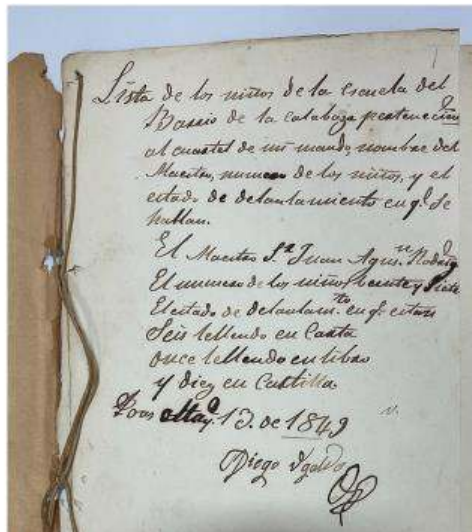 Lista de los niños de la escuela del
Barrio de la calabaza perteneciente
al cuartel de mi mando, nombre del
Maestro, numero de los niños, y el
estado de delantamiento en q.e se
hallan.
El Maestro S.r Juan Agus.n Rodrig.z
El numero de los niños beinte y siete
El estado de delantam.to en q.e estan
Seis lellendo en Carta
once lellendo en libro
y diez en Cartilla.
May.o 13. de 1849
Diego